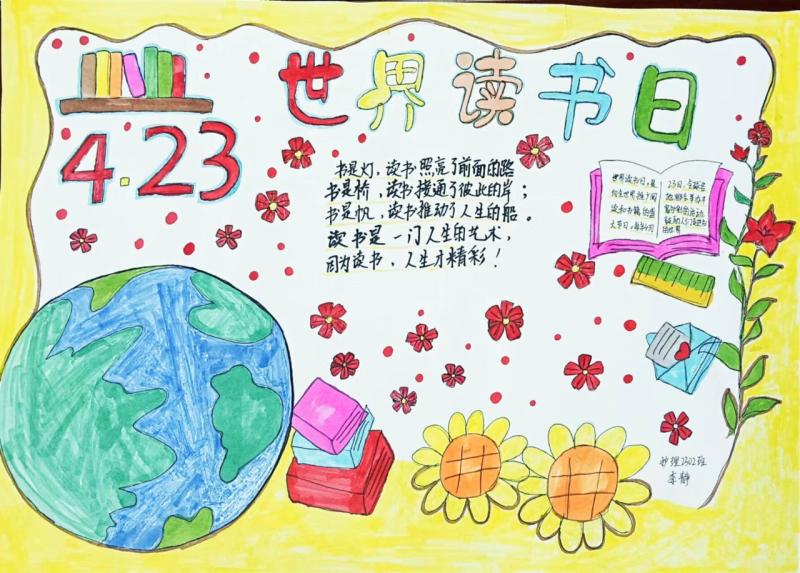 世界读书日
4.23
书是灯,读书照亮了前面的路
书是桥,读书接通了彼此的岸;
书是帆,读书推动了人生的船。
读书是一门人生的艺术,
因为读书,人生才精彩!
世界读书日,是
向全世界推广阅
读和书籍的盛
大节日,每年4月
23日,全球各
地都会
护理2302班
李静